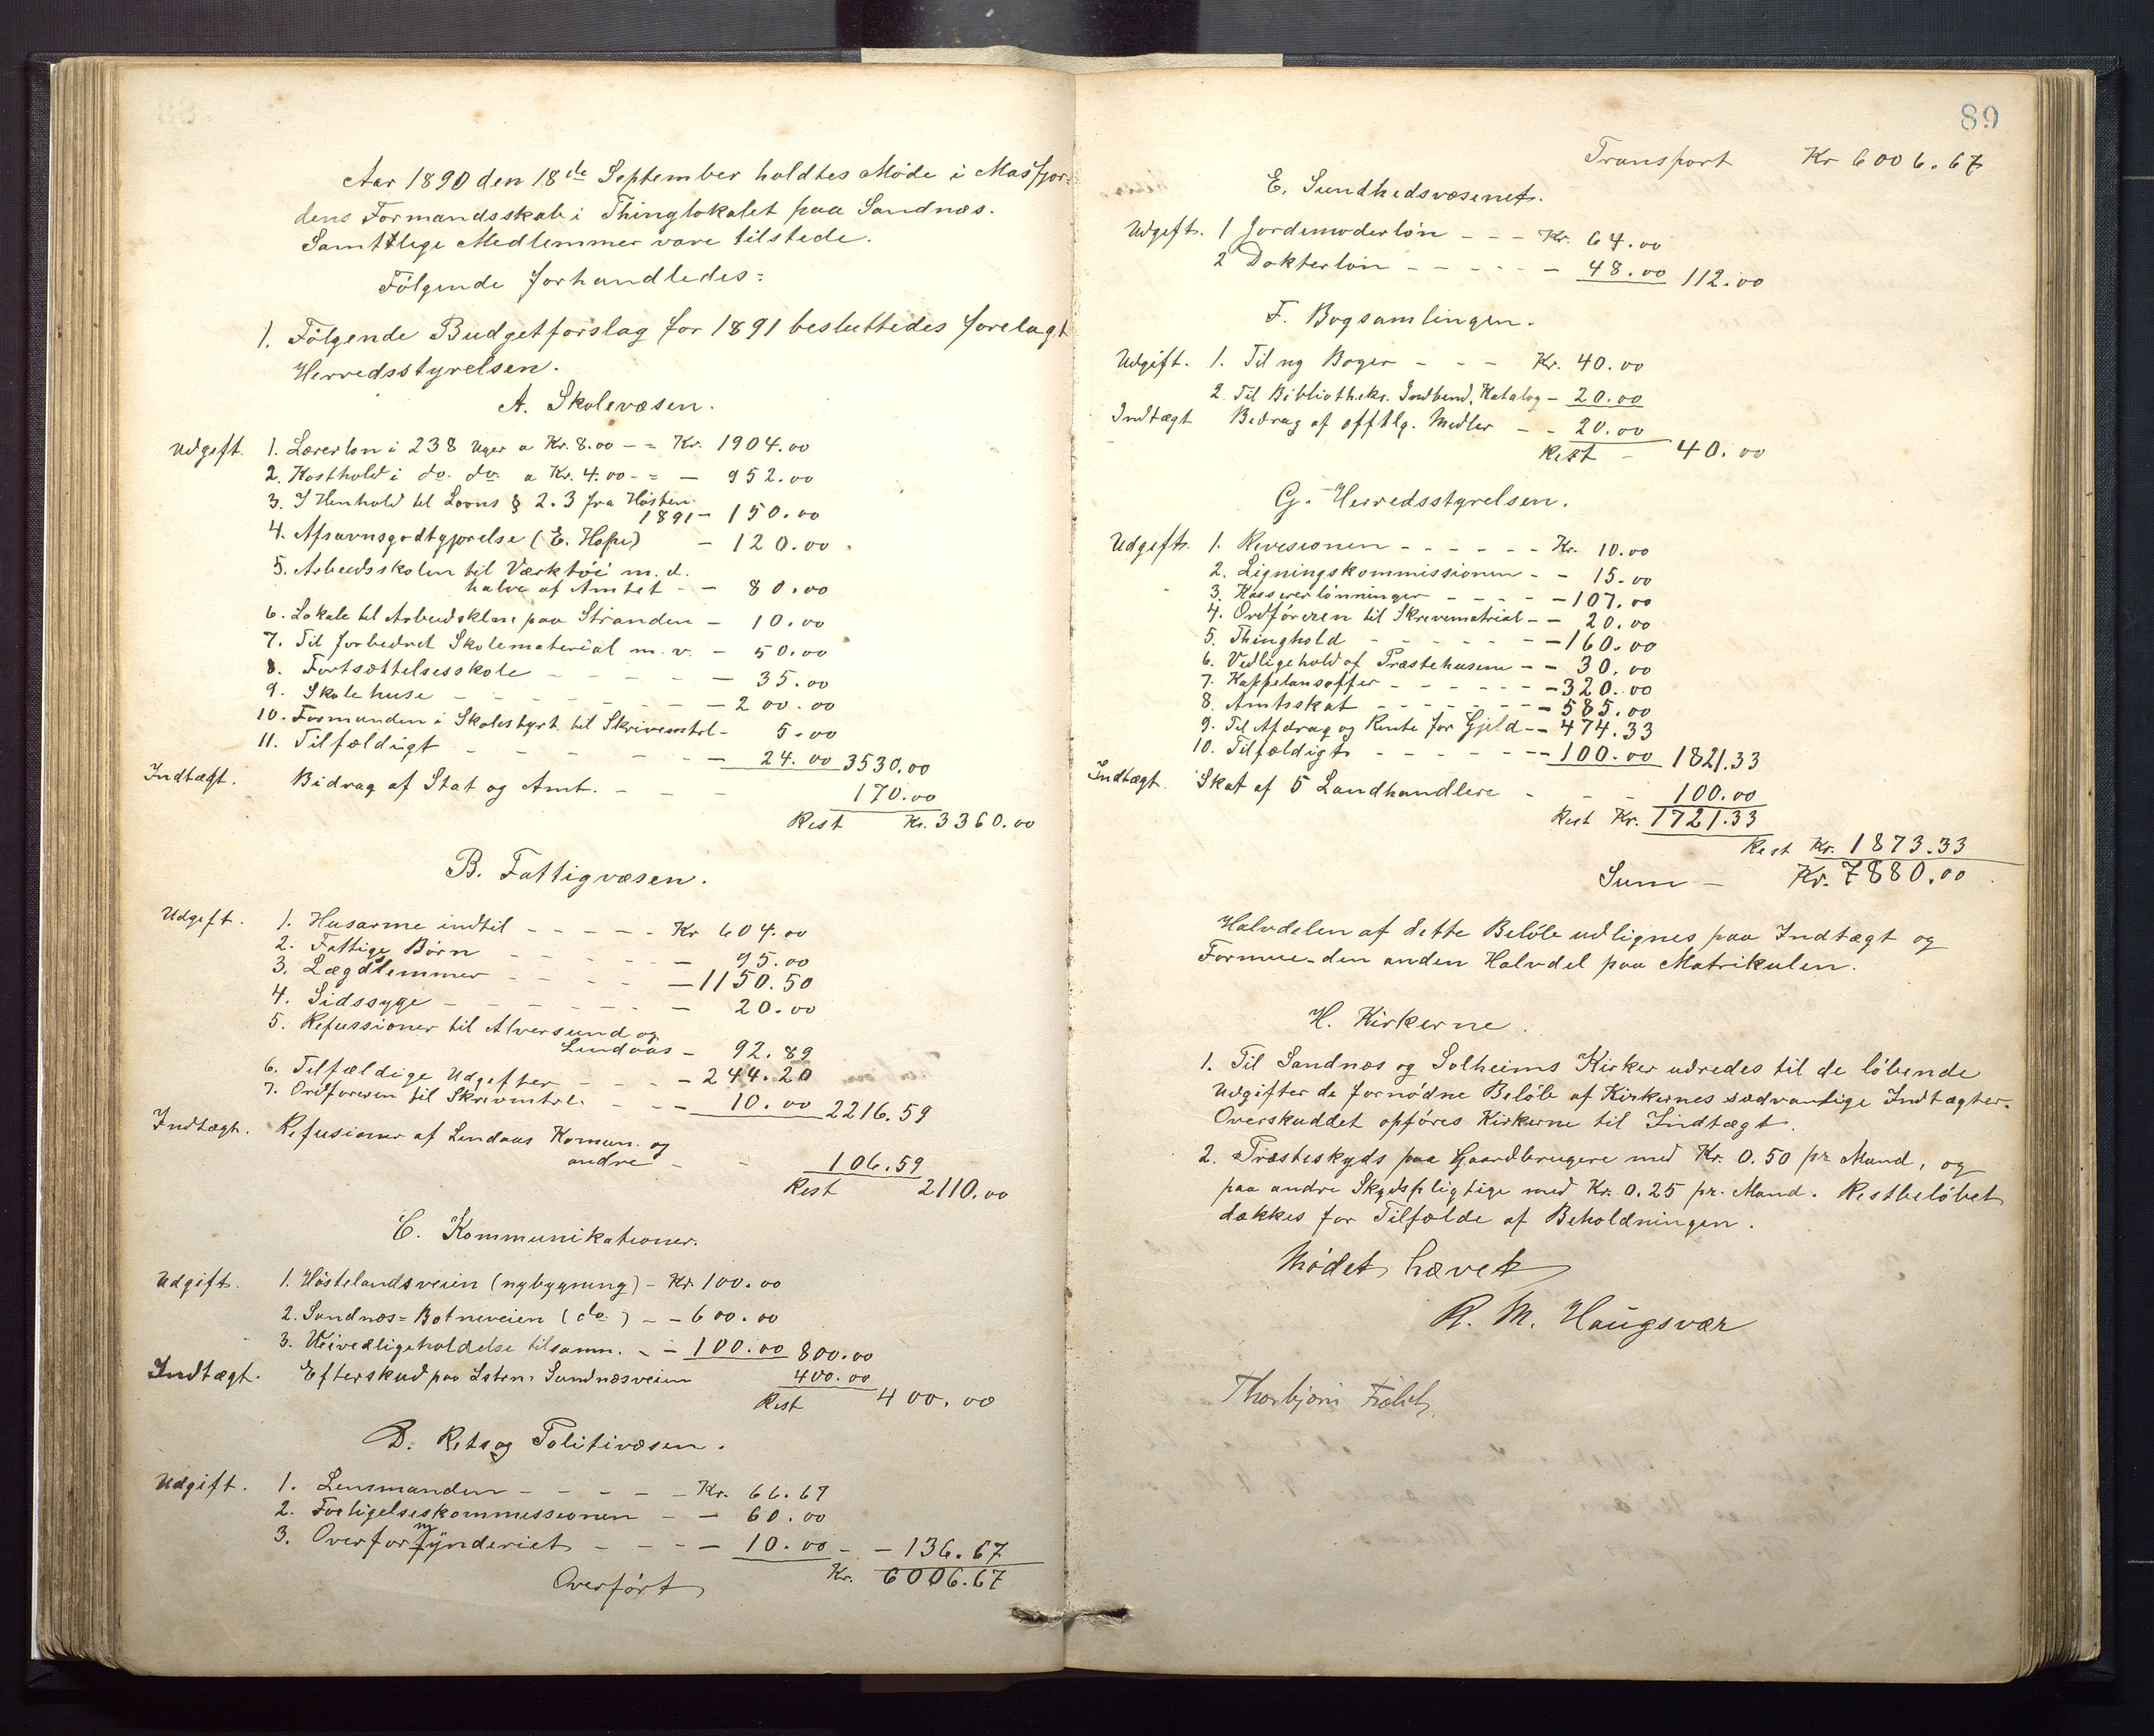 Aar 1890 den 18de September holdtes Møde i Masfjor-
dens Formandsskab i Thinglokalet paa Sandnæs.
Samtlige Medlemmer vare tilstede.
Følgende forhandledes:
1. Følgende Budgetforslag for 1891 besluttedes forelagt
Herredsstyrelsen.
A. Skolevæsen.
Udgift. 1. Lærerløn i 238 Uger a Kr. 8.00 - = Kr. 1904.00
2. Kosthold i do. do. a Kr. 4.00 - = - 952.00
3. I Henhold til Lovens § 2.3 fra Høsten
1891 - 150.00
4. Afsavnsgodtgjørelse (E. Hope) - 120.00.
5. Arbeidsskolen til Værktøi m. d.
halve af Amtet - - 80.00
6. Lokale til Arbeidsklne paa Stranden - 10.00
7. Til forbedret Skolematerial m. v. - 50.00
8. Fortsættelsesskole - - - - - 35.00
9. Skolehuse - - - - - - 200.00
10. Formanden i Skolestyrt. til Skrivemtrl - 5.00
11. Tilfældigt - - - - - - 24.00 3530.00
Indtægt. Bidrag af Stat og Amt. - - - 170.00
Rest Kr. 3360.00
B. Fattigvæsen.
Udgift. 1. Husarme indtil - - - - - Kr 604.00
2. Fattige Børn - - - - - - 95.00
3. Lægdlemmer - - - - - 1150.50
4. Sidssyge - - - - - - - 20.00
5. Refussioner til Alversund og
Lindaas - 92.89
6. Tilfældige Udgifter - - - - 244.20
7. Ordføreren til Skrivmtrl. - - - 10.00 2216.59
Indtægt. Refusioner af Lindaas Komun. og
andre - - 106.59
Rest 2110.00
C. Kommunikationer.
Udgift. 1. Høstelandsveien (nybygning) - Kr. 100.00
2. Sandnæs-Botneveien (do) - - 600.00
3. Veivedligeholdelse tilsamn. - - 100.00 800.00
Indtægt. Efterskud paa Sandnæsveien 400.00
Rest 400.00
D. Rets og Politivæsen.
Udgift. 1. Lensmanden - - - - - Kr. 66.67
2. Forligelseskommissionen - - 60.00
3. Overformynderiet - - - - 10.00 - - 136.67
Overført Kr. 6006.67
89
Transport Kr 6006.67
E. Sundhedsvæsenet.
Udgift. 1 Jordemoderløn - - - Kr. 64.00
2 Dokterløn - - - - - - 48.00 112.00
F. Bogsamlingen.
Udgift. 1. Til ny Bøger - - - Kr. 40.00
2. Til Bibliothekr. Indbind, Katalog - 20.00
Indtægt Bidrag af offtlg. Midler - - 20.00
Rest - 40.00
G. Herredsstyrelsen.
Udgift. 1. Revisionen - - - - - - Kr. 10.00
2. Ligningskommissionen - - 15.00
3. Kassererlønninger - - - - - 107.00
4. Ordføreren til Skrivematrial - - 20.00
5. Thinghold - - - - - - - 160.00
6. Vedligehold af Præstehusene - - 30.00
7. Kappelansoffer - - - - - - - 320.00
8. Amtsskat - - - - - - - 585.00
9. Til Afdrag og Rente for Gjeld - - 474.33
10. Tilfældigt - - - - - - - 100.00 1821.33
Indtægt. Skat af 5 Landhandlere - - - 100.00
Rest Kr. 1721.33
Rest Kr. 1873.33
Sum - Kr. 7880.00
Halvdelen af dette Beløb udlignes paa Indtægt og
Formue - den anden Halvdel paa Matrikulen.
H. Kirkerne.
1. Til Sandnæs og Solheims Kirker udredes til de løbende
Udgifter de fornødne Beløb af Kirkernes sædvanlige Indtægter.
Overskuddet opføres Kirkerne til Indtægt.
2. Præsteskyds paa Gaardbrugere med Kr. 0.50 pr Mand, og
paa andre Skydspligtige med Kr. 0.25 pr. Mand. Restbeløbet
dækkes for Tilfælde af Beholdningen.
Mødet hævet
R. M. Haugsvær
Thorbjørn